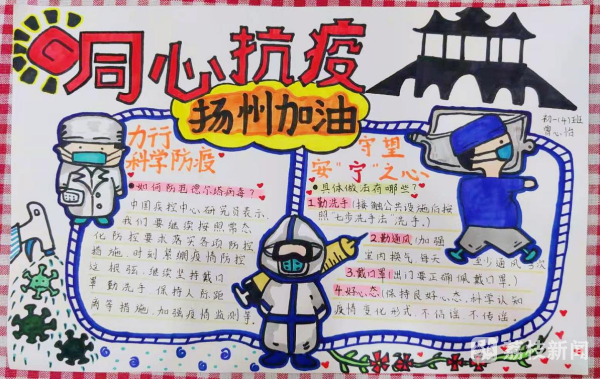 同心抗疫
扬州加油
初一14班
曹心怡
力行
科学防疫
如何防范德尔塔病毒?
中国疾控中心研究员表示,
我们要继续按照常态
化防控要求落实各项防控
措施,时刻紧绷疫情防控
这根弦,继续坚持戴口
罩勤洗手,保持人际距
离等措施,加强疫情监测等。
守望
安"宁"之心
具体做法有哪些?
1.勤洗手(接触公共设施后按
照七步洗手法洗手。)
2.勤通风(加强
室内换气 每天 至少通风
3.戴口罩(出门要正确佩戴口罩。)
4.好心态(保持良好心态,科学认知
疫情变化形式,不信谣,不传谣。
荔枝新闻